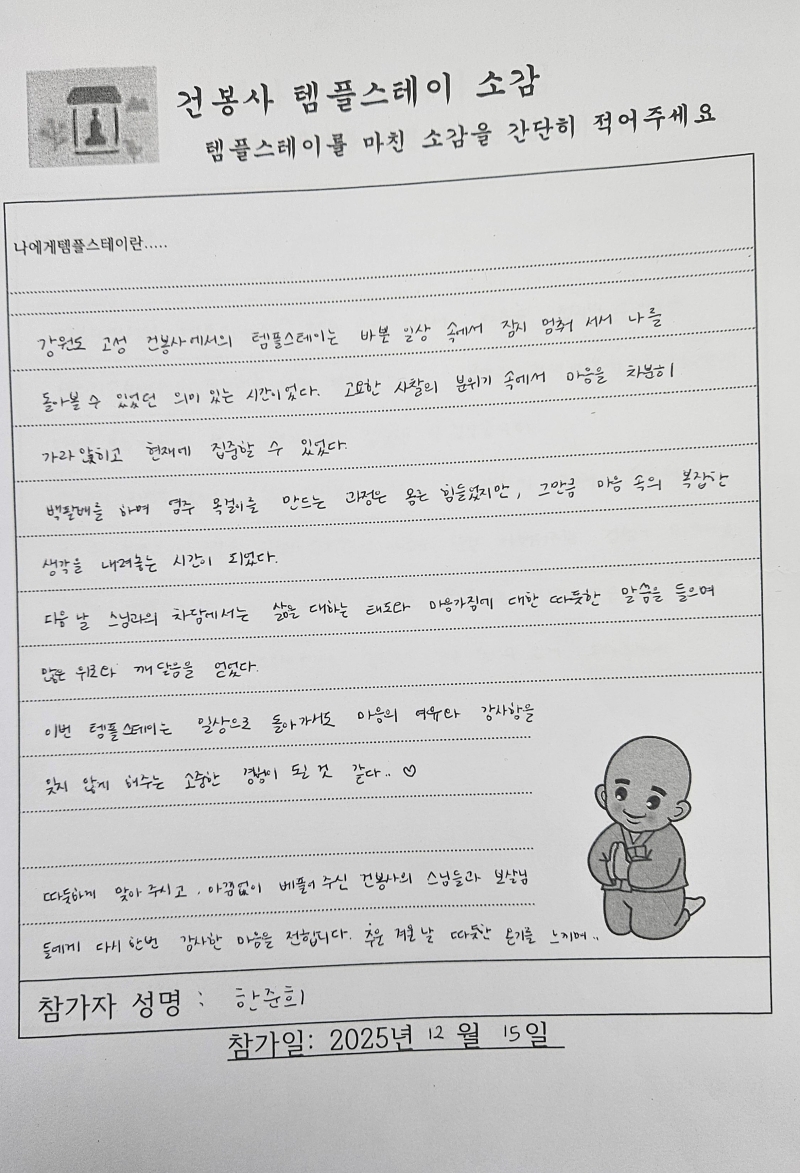 건봉사 템플스테이 소감
템플스테이를 마친 소감을 간단히 적어주세요
나에게템플스테이란.....
강원도 고성 건봉사에서의 템플스테이는 바쁜 일상 속에서 잠시 멈춰 서서 나를
돌아볼 수 있었던 의미 있는 시간이었다. 고요한 사찰의 분위기 속에서 마음을 차분히
가라앉히고 현재에 집중할 수 있었다.
백팔배를 하며 염주 목걸이를 만드는 과정은 몸은 힘들었지만, 그만큼 마음 속의 복잡한
생각을 내려놓는 시간이 되었다.
다음 날 스님과의 차담에서는 삶을 대하는 태도와 마음가짐에 대한 따뜻한 말씀을 들으며
많은 위로와 깨달음을 얻었다.
이번 템플스테이는 일상으로 돌아가서도 마음의 여유와 감사함을
잊지 않게 해주는 소중한 경험이 된 것 같다.. ♡
따듯하게 맞아 주시고, 아낌없이 베풀어 주신 건봉사의 스님들과 보살님
들에게 다시 한번 감사한 마음을 전합니다. 추운 겨울 날 따뜻한 온기를 느끼며..
참가자 성명 : 한준희
참가일: 2025년 12 월 15일